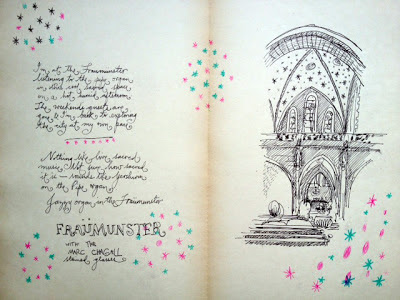 I'm at the Fraumunster
listening to the pipe organ
in this cool sacred space
on a hot humid afternoon.
The weekends guests are
gone & I'm back to exploring
the city at my own pace
Nothing like live sacred
music. Not sure how sacred
it is — besides the
on the Pipe organ
Jazzy organ in the Fraumunster
FRAÜMUNSTER
WITH THE
MARC CHAGALL
stained glasses